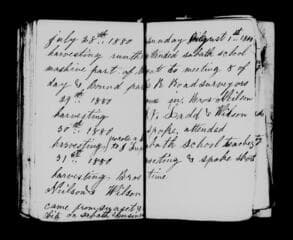 July 28th. 1880
harvesting run the
mashine part of
day & bound part
29th. 1880
harvesting
30th. 1880 wrote a
harvesting to J
31st 1880
harvesting Bros
Nielson & Wilson
came from
sunday August 1st. 1880
attended sabath school
to meeting & of
R Road surveyors
Bros Nielson
Dodd & Wilson
spoke, attended
sabath school teachers
meeting & spoke short
time